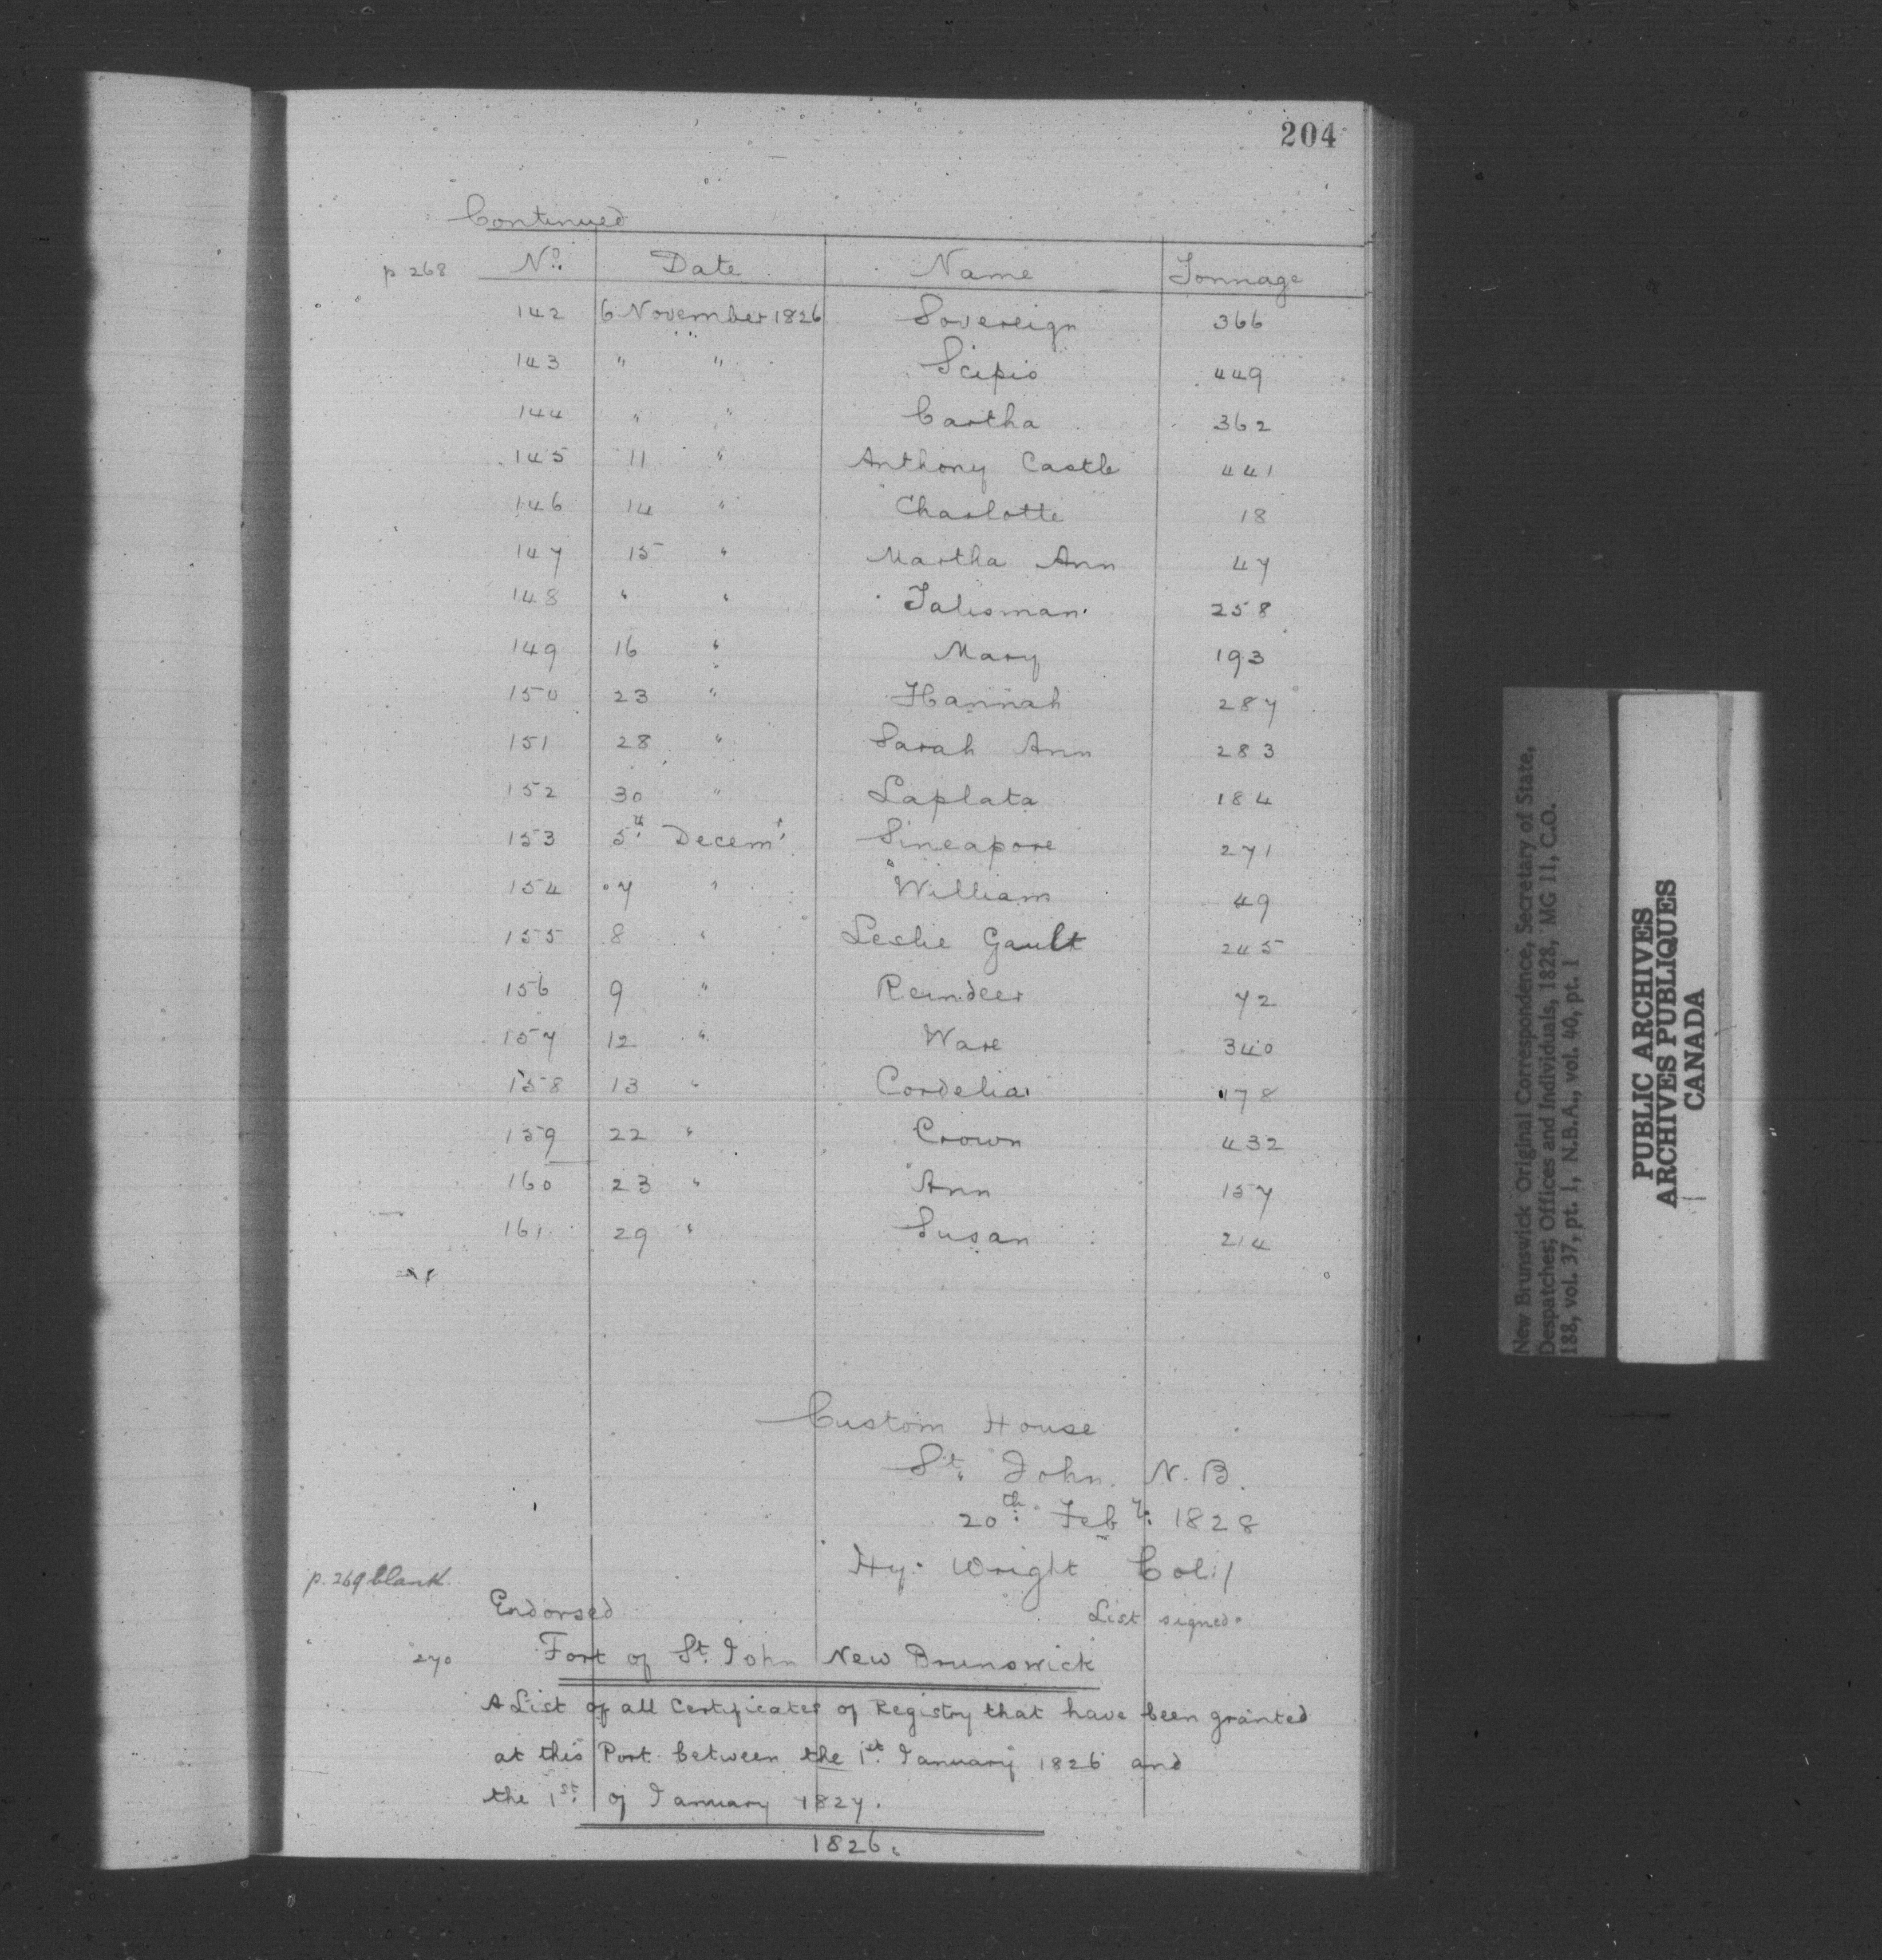 204
Continued
p 268 No. Date Name Tonnage
142 6 November 1826 Sovereign 366
143 " " Scipio 449
144 " " Cartha 362
145 11 " Anthony Castle 441
146 14 " Charlotte 18
147 15 " Martha Ann 47
148 " " Talisman 258
149 16 " Mary 193
150 23 " Hannah 287
151 28 " Sarah Ann 283
152 30 " Laplata 184
153 5th Decemr Sincapore 271
154 7 " William 49
155 8 " Leslie Gault 245
156 9 " Reindeer 72
157 12 " Ware 340
158 13 " Cordelia 178
159 22 " Crown 432
160 23 " Ann 157
161 29 " Susan 214
Custom House
St. John. N. B.
20th Feby: 1828
Hy. Wright Col:/
p. 269 blank
Endorsed List signed.
270 Fort of St. John New Brunswick
A List of all Certificates of Registry that have been granted
at this Port between the 1st. January 1826 and
the 1st. of January 1827.
1826.
New Brunswick Original Correspondence, Secretary of State,
Despatches; Offices and Individuals, 1828, MG 11, C.O.
188, vol. 37, pt. 1, N.B.A., vol. 40, pt. 1
PUBLIC ARCHIVES
ARCHIVES PUBLIQUES
CANADA